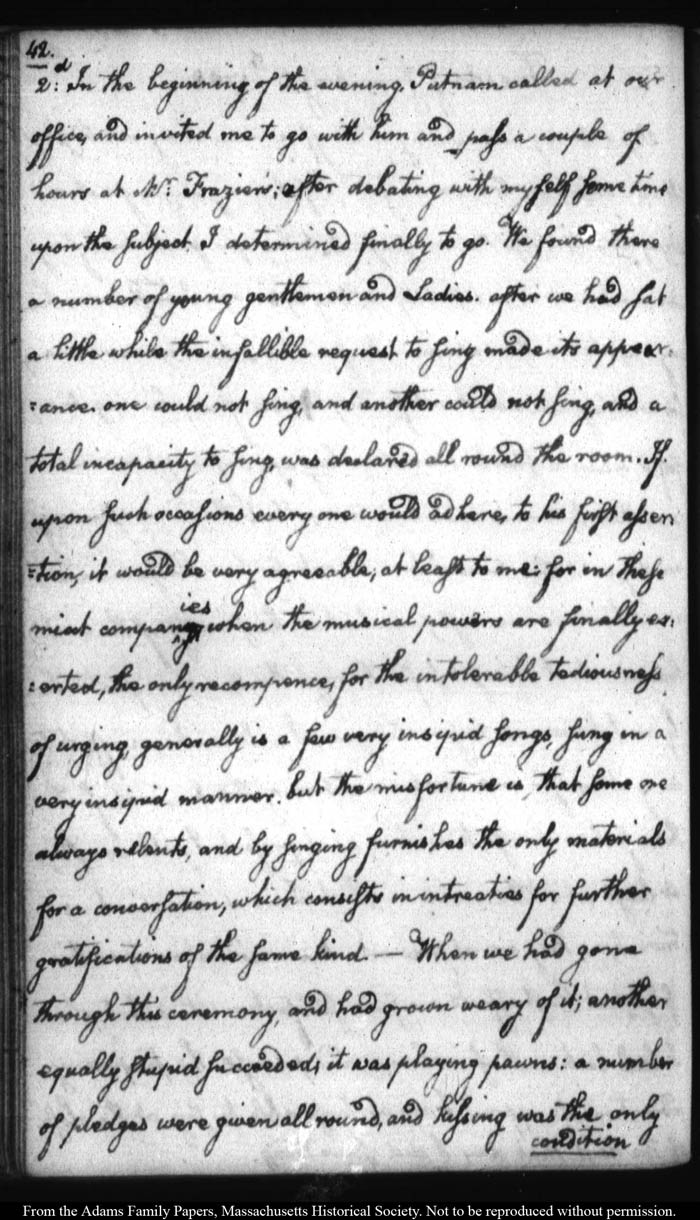 42.
2:d In the beginning of the evening, Putnam called at our
office, and invited me to go with him and pass a couple of
hours at Mr. Frazier's; after debating with myself some time
upon the subject, I determined finally to go. We found there
a number of young gentlemen and Ladies. after we had sat
a little while the infallible request to sing made its appear:
:ance. one could not sing, and another could not sing, and a
total incapacity to sing, was declared all round the room. If
upon such occasions every one would adhere, to his first asser
:tion, it would be very agreeable, at least to me: for in these
mixt companies when the musical powers are finally ex:
:erted, the only recompence, for the intolerable tediousness
of urging, generally is a few very insipid songs, sung in a
very insipid manner. but the misfortune is, that some one
always relents, and by singing furnishes the only materials
for a conversation, which consists in intreaties for further
gratifications of the same kind. — When we had gone
through this ceremony, and had grown weary of it; another
equally stupid succeeded; it was playing pawns: a number
of pledges were given all round, and kissing was the only
condition
From the Adams Family Papers, Massachusetts Historical Society. Not to be reproduced without permission.